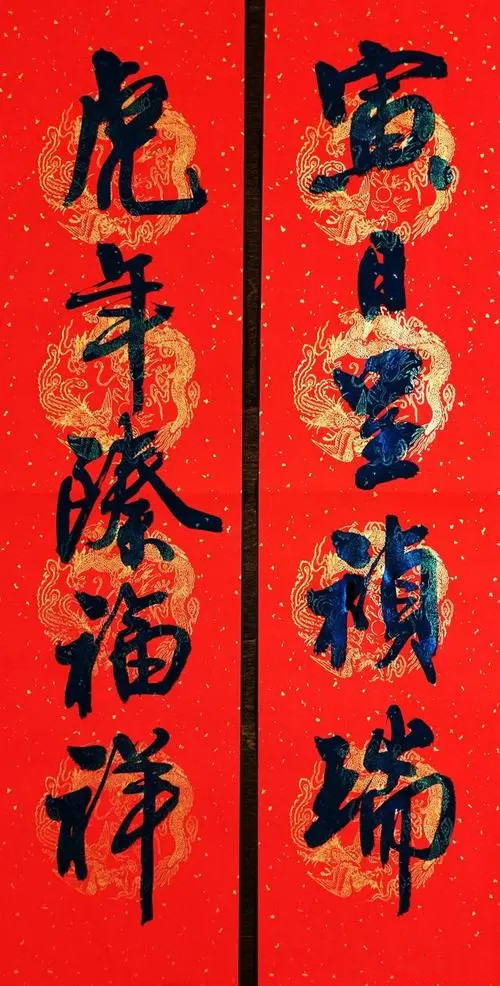 寅日呈禎瑞
虎年臻福祥